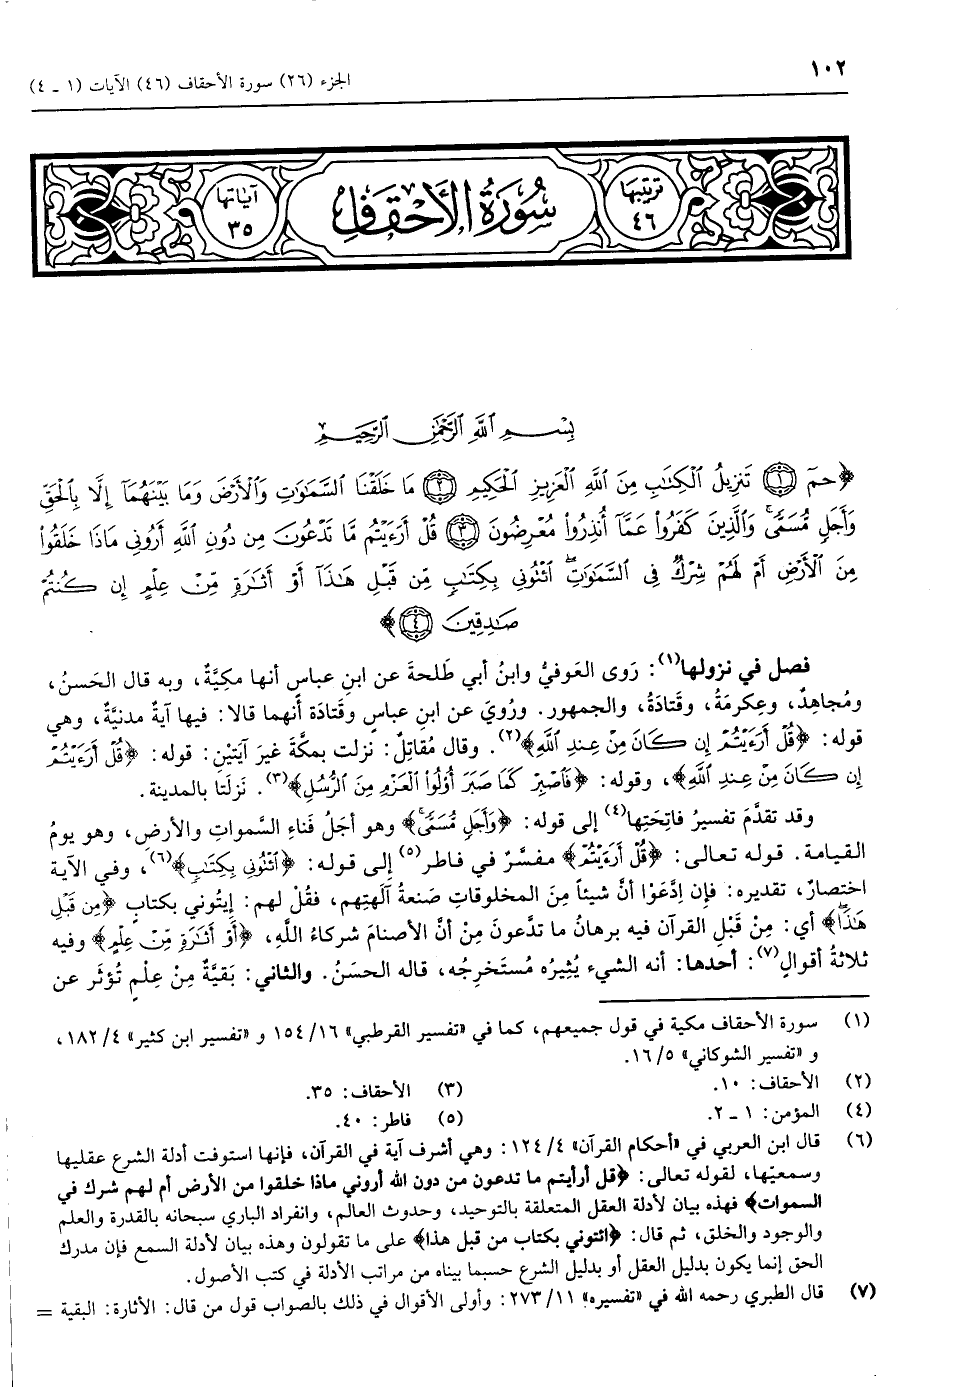 ١٠٢
الجزء (٢٦) سورة الأحقاف (٤٦) الآيات (١ ـ ٤)
ترتيبها ٤٦
سُورَةُ الأَحْقَافِ
آياتها ٣٥
بِسْمِ ٱللَّهِ ٱلرَّحْمَٰنِ ٱلرَّحِيمِ
﴿حمٓ ١ تَنزِيلُ ٱلْكِتَٰبِ مِنَ ٱللَّهِ ٱلْعَزِيزِ ٱلْحَكِيمِ ٢ مَا خَلَقْنَا ٱلسَّمَٰوَٰتِ وَٱلْأَرْضَ وَمَا بَيْنَهُمَآ إِلَّا بِٱلْحَقِّ
وَأَجَلٍ مُّسَمًّىۚ وَٱلَّذِينَ كَفَرُوا۟ عَمَّآ أُنذِرُوا۟ مُعْرِضُونَ ٣ قُلْ أَرَءَيْتُم مَّا تَدْعُونَ مِن دُونِ ٱللَّهِ أَرُونِى مَاذَا خَلَقُوا۟
مِنَ ٱلْأَرْضِ أَمْ لَهُمْ شِرْكٌ فِى ٱلسَّمَٰوَٰتِۖ ٱئْتُونِى بِكِتَٰبٍ مِّن قَبْلِ هَٰذَآ أَوْ أَثَٰرَةٍ مِّنْ عِلْمٍ إِن كُنتُمْ
صَٰدِقِينَ ٤﴾
فصل في نزولها(١): رَوى العَوفيُّ وابنُ أبي طَلحةَ عن ابنِ عباسٍ أنها مكيَّةٌ، وبه قال الحَسنُ،
ومُجاهِدٌ، وعِكرمَةُ، وقَتادَةُ، والجمهور. ورُويَ عن ابن عباسٍ وقَتادَة أنهما قالا: فيها آيةٌ مدنيَّةٌ، وهي
قوله: ﴿قُلْ أَرَءَيْتُمْ إِن كَانَ مِنْ عِندِ ٱللَّهِ﴾(٢). وقال مُقاتِلٌ: نزلت بمكَّةَ غيرَ آيَتَيْنِ: قوله: ﴿قُلْ أَرَءَيْتُمْ
إِن كَانَ مِنْ عِندِ ٱللَّهِ﴾، وقوله: ﴿فَٱصْبِرْ كَمَا صَبَرَ أُو۟لُوا۟ ٱلْعَزْمِ مِنَ ٱلرُّسُلِ﴾(٣). نَزلَتا بالمدينة.
وقد تقدَّمَ تفسيرُ فاتِحَتِها(٤) إلى قوله: ﴿وَأَجَلٍ مُّسَمًّىۚ﴾ وهو أجَلُ فَناءِ السَّمواتِ والأرضِ، وهو يومُ
القيامة. قوله تعالى: ﴿قُلْ أَرَءَيْتُم﴾ مفسَّرٌ في فاطر(٥) إلى قوله: ﴿ٱئْتُونِى بِكِتَٰبٍ﴾(٦)، وفي الآية
اختصارٌ، تقديره: فإن إدَّعَوْا أنَّ شيئاً مِنَ المخلوقاتِ صَنعةُ آلهتِهم، فقُلْ لهم: إيتُوني بكتابٍ ﴿مِن قَبْلِ
هَٰذَآ﴾ أي: مِنْ قَبْلِ القرآن فيه برهانُ ما تدَّعونَ مِنْ أنَّ الأصنامَ شركاءُ اللَّهِ، ﴿أَوْ أَثَٰرَةٍ مِّنْ عِلْمٍ﴾ وفيه
ثلاثةُ أقوالٍ(٧): أحدها: أنه الشيء يُثيرُه مُستَخرِجُه، قاله الحسَنُ. والثاني: بَقيَّةٌ مِنْ عِلْمٍ تُؤثَر عن
(١) سورة الأحقاف مكية في قول جميعهم، كما في «تفسير القرطبي» ١٦/١٥٤ و «تفسير ابن كثير» ٤/١٨٢،
و «تفسير الشوكاني» ٥/١٦.
(٢) الأحقاف: ١٠. (٣) الأحقاف: ٣٥.
(٤) المؤمن: ١ ـ ٢. (٥) فاطر: ٤٠.
(٦) قال ابن العربي في «أحكام القرآن» ٤/١٢٤: وهي أشرف آية في القرآن، فإنها استوفت أدلة الشرع عقليها
وسمعيّها، لقوله تعالى: ﴿قل أرأيتم ما تدعون من دون الله أروني ماذا خلقوا من الأرض أم لهم شرك في
السموات﴾ فهذه بيان لأدلة العقل المتعلقة بالتوحيد، وحدوث العالم، وانفراد الباري سبحانه بالقدرة والعلم
والوجود والخلق، ثم قال: ﴿ائتوني بكتاب من قبل هذا﴾ على ما تقولون وهذه بيان لأدلة السمع فإن مدرك
الحق إنما يكون بدليل العقل أو بدليل الشرع حسبما بيناه من مراتب الأدلة في كتب الأصول.
(٧) قال الطبري رحمه الله في «تفسيره» ١١/٢٧٣: وأولى الأقوال في ذلك بالصواب قول من قال: الأثارة: البقية =